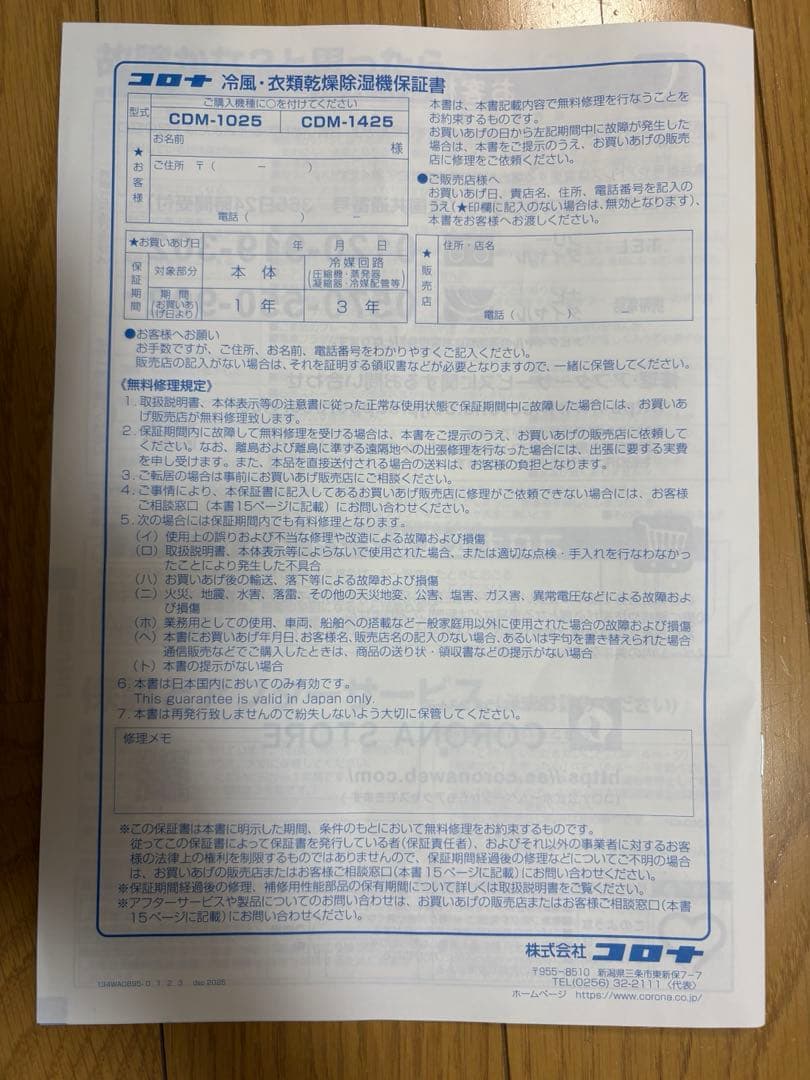 コロナ 冷風・衣類乾燥除湿機保証書
型式
ご購入機種に○を付けてください
CDM-1025 CDM-1425
★お客様
お名前
様
ご住所 〒( － )
電話( ) －
本書は、本書記載内容で無料修理を行なうことを
お約束するものです。
お買いあげの日から左記期間中に故障が発生した
場合は、本書をご提示のうえ、お買いあげの販売
店に修理をご依頼ください。
●ご販売店様へ
お買いあげ日、貴店名、住所、電話番号を記入の
うえ(★印欄に記入のない場合は、無効となります)、
本書をお客様へお渡しください。
★お買いあげ日 年 月 日
保証期間
対象部分 本体 冷媒回路
(圧縮機・蒸発器
凝縮器・冷媒配管等)
期間
(お買いあ
げ日より)
1年 3年
★販売店
住所・店名
電話( ) －
●お客様へお願い
お手数ですが、ご住所、お名前、電話番号をわかりやすくご記入ください。
販売店の記入がない場合は、それを証明する領収書などが必要となりますので、一緒に保管してください。
《無料修理規定》
1．取扱説明書、本体表示等の注意書に従った正常な使用状態で保証期間中に故障した場合には、お買いあ
げ販売店が無料修理致します。
2．保証期間内に故障して無料修理を受ける場合は、本書をご提示のうえ、お買いあげの販売店に依頼して
ください。なお、離島および離島に準ずる遠隔地への出張修理を行なった場合には、出張に要する実費
を申し受けます。また、本品を直接送付される場合の送料は、お客様の負担となります。
3．ご転居の場合は事前にお買いあげ販売店にご相談ください。
4．ご事情により、本保証書に記入してあるお買いあげ販売店に修理がご依頼できない場合には、お客様
ご相談窓口(本書15ページに記載)にお問い合わせください。
5．次の場合には保証期間内でも有料修理となります。
(イ)使用上の誤りおよび不当な修理や改造による故障および損傷
(ロ)取扱説明書、本体表示等によらないで使用された場合、または適切な点検・手入れを行なわなかっ
たことにより発生した不具合
(ハ)お買いあげ後の輸送、落下等による故障および損傷
(ニ)火災、地震、水害、落雷、その他の天災地変、公害、塩害、ガス害、異常電圧などによる故障およ
び損傷
(ホ)業務用としての使用、車両、船舶への搭載など一般家庭用以外に使用された場合の故障および損傷
(ヘ)本書にお買いあげ年月日、お客様名、販売店名の記入のない場合、あるいは字句を書き替えられた場合
通信販売などでご購入したときは、商品の送り状・領収書などの提示がない場合
(ト)本書の提示がない場合
6．本書は日本国内においてのみ有効です。
This guarantee is valid in Japan only.
7．本書は再発行致しませんので紛失しないよう大切に保管してください。
修理メモ
※この保証書は本書に明示した期間、条件のもとにおいて無料修理をお約束するものです。
従ってこの保証書によって保証書を発行している者(保証責任者)、およびそれ以外の事業者に対するお客
様の法律上の権利を制限するものではありませんので、保証期間経過後の修理などについてご不明の場合
は、お買いあげの販売店またはお客様ご相談窓口(本書15ページに記載)にお問い合わせください。
※保証期間経過後の修理、補修用性能部品の保有期間について詳しくは取扱説明書をご覧ください。
※アフターサービスや製品についてのお問い合わせは、お買いあげの販売店またはお客様ご相談窓口(本書
15ページに記載)にお問い合わせください。
株式会社 コロナ
〒955-8510 新潟県三条市東新保7-7
TEL(0256)32-2111〈代表〉
ホームページ https://www.corona.co.jp/
134WA0895-0 1 2 3 dec 2025